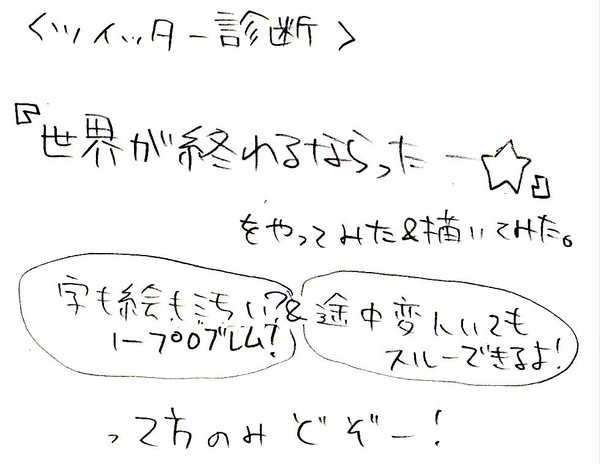 <ツイッター診断>
『世界が終わるならったー☆』
をやってみた&描いてみた。
字も絵も汚い?& 途中変人いても
ノープロブレム? スルーできるよ!
って方のみどぞー!